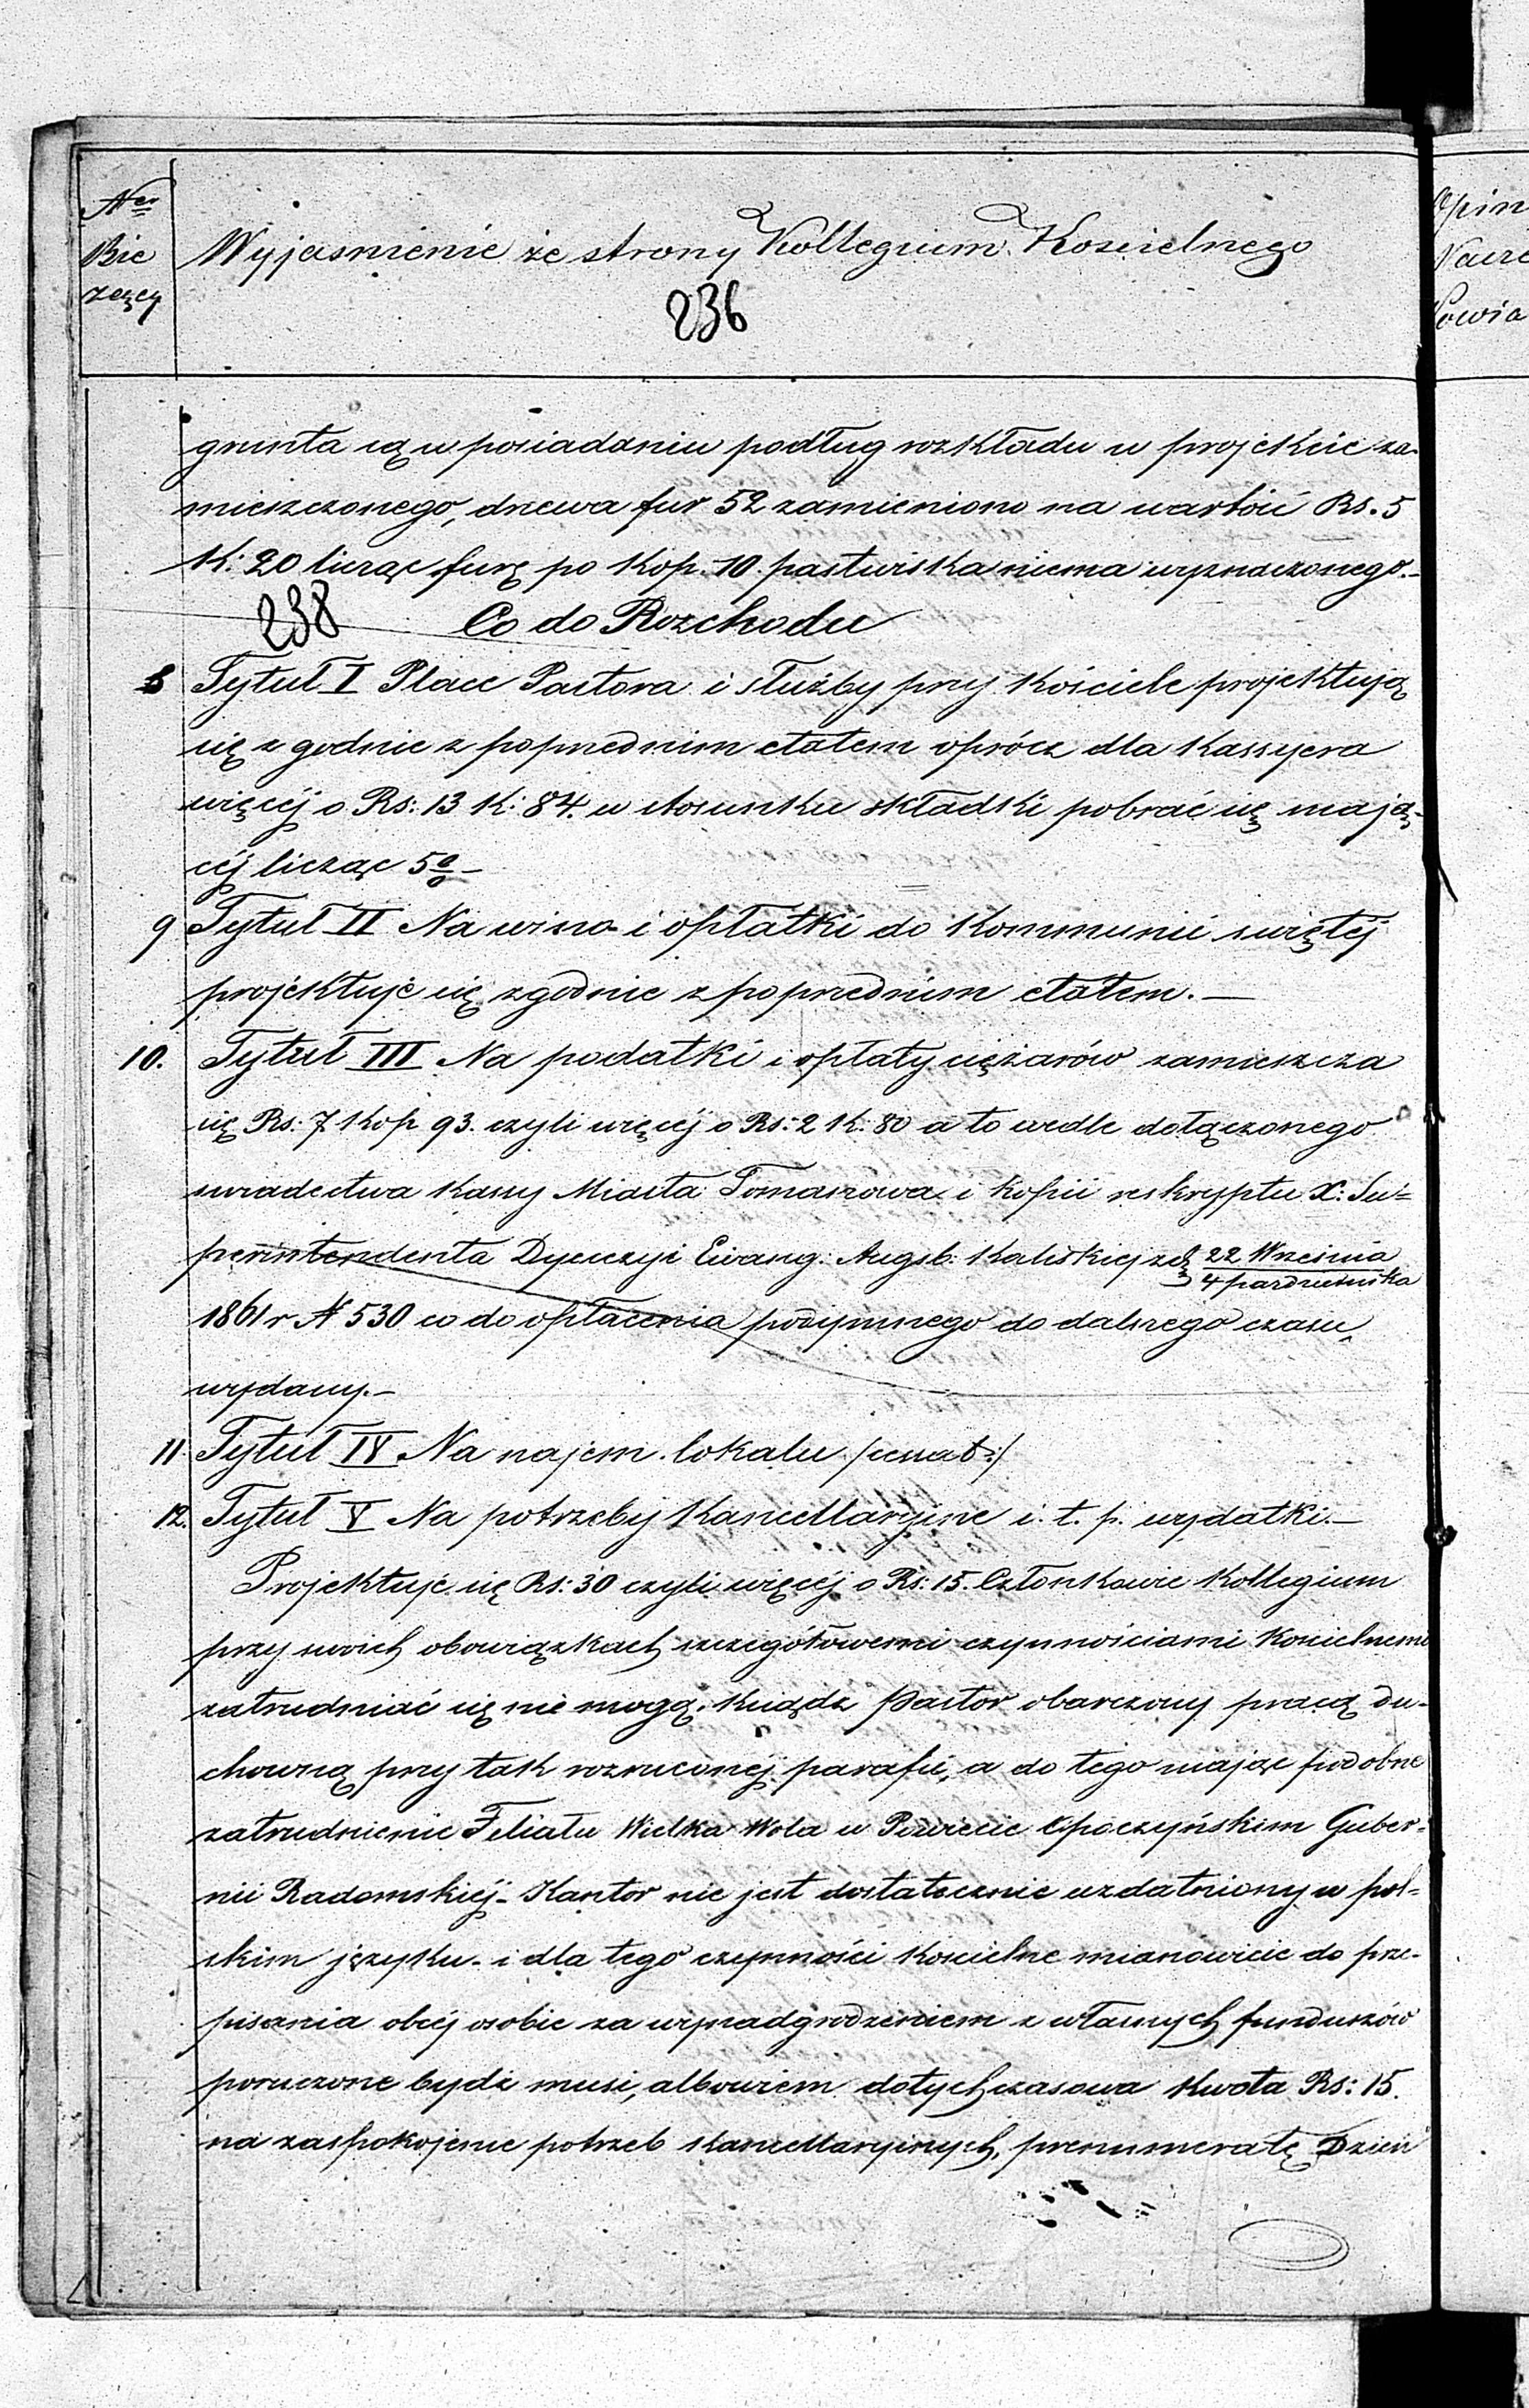 Ner
Bie
żący
Wyjasnienie ze strony Kollegium Kościelnego
236
grunta są w posiadaniu podług rozkładu w projekcie za-
mieszczonego, drzewa fur 52 zamieniono na wartość Rs. 5
K: 20 licząc furę po Kop. 10. pastwiska niema wyznaczonego.-
238
Co do Rozchodu
8 Tytuł I Płace Pastora i służby przy kościele projektują
się zgodnie z poprzednim etatem oprócz dla Kassyera
więcéj o Rs: 13 K: 84. w stosunku składki pobrać się mają-
céj licząc 5%-
9 Tytuł II Na wino i opłatki do Kommunii świętéj
projektuje się zgodnie z poprzednim etatem.-
10. Tytuł III Na podatki i opłaty ciężarów zamieszcza
się Rs: 7 Kop 93. czyli więcéj o Rs: 2 K: 80 a to wedle dołączonego
swiadectwa Kassy Miasta Tomaszowa i kopii reskryptu X: Su=
perintendenta Dyecezyi Ewang: Augsb: Kaliskiej z d 22 Września
4 października
1861 r N 530 co do opłacenia podymnego do dalszego czasu,
wydany.-
11. Tytuł IV Na najem lokalu /:cessat:/
12. Tytuł V Na potrzeby Kancellaryjne i. t. p. wydatki.-
Projektuje się Rs: 30 czyli więcéj o Rs: 15. Członkowie Kollegium
przy swoich obowiązkach szczegółowemi czynnościami Kościelnemi
zatrudniać się nie mogą. Ksiądz Pastor obarczony pracą du-
chowną przy tak rozrzuconéj parafii, a do tego mając podobne
zatrudnienie Feliału Wielka Wola w Powiecie Opoczyńskim Guber=
nii Radomskiéj- Kantor nie jest dostatecznie uzdatniony w pol=
skim języku- i dla tego czynności Kościelne mianowicie do prze-
pisania obcéj osobie za wynadgrodzeniem z własnych funduszów
poruczone bydź musi, albowiem dotychczasowa Kwota Rs: 15.
na zaspokojenie potrzeb Kancellaryjnych, prenumeratę Dzien
Opin
Nacze
Powia